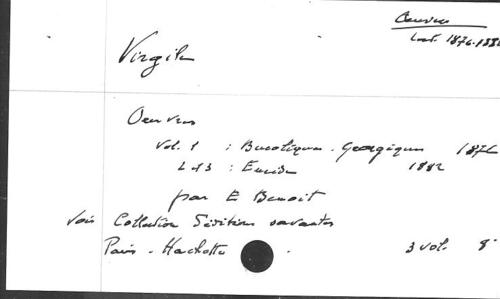 Oeuvres
Lat. 1876-188
Virgile
Oeuvres
Vol. 1 : Bucoliques - Georgiques 1876
2 et 3 : Eneide 1882
par E Benoit
Voir Collection d'éditions savantes
Paris - Hachette 3 vol. 8°